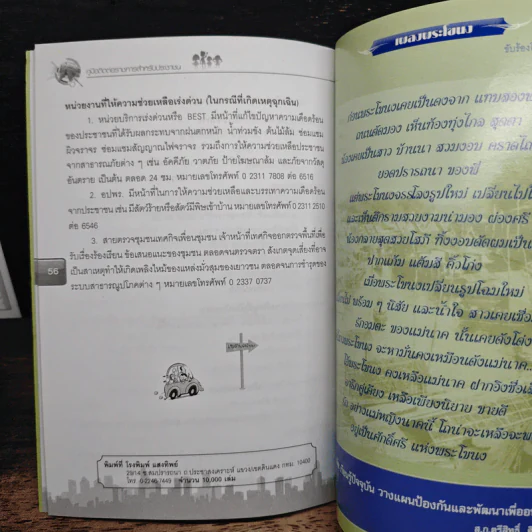 คู่มือติดต่อราชการสำหรับประชาชน
หน่วยงานที่ให้ความช่วยเหลือเร่งด่วน (ในกรณีที่เกิดเหตุฉุกเฉิน)
1. หน่วยบริการเร่งด่วนหรือ BEST มีหน้าที่แก้ไขปัญหาความเดือดร้อน
ของประชาชนที่ได้รับผลกระทบจากฝนตกหนัก น้ำท่วมขัง ต้นไม้ล้ม ซ่อมแซม
ผิวจราจร ซ่อมแซมสัญญาณไฟจราจร รวมถึงการให้ความช่วยเหลือประชาชน
จากสาธารณภัยต่าง ๆ เช่น อัคคีภัย วาตภัย ป้ายโฆษณาล้ม และภัยจากวัตถุ
อันตราย เป็นต้น ตลอด 24 ชม. หมายเลขโทรศัพท์ 0 2311 7808 ต่อ 6516
2. อปพร. มีหน้าที่ในการให้ความช่วยเหลือและบรรเทาความเดือดร้อน
จากประชาชน เช่น มีสัตว์ร้ายหรือสัตว์มีพิษเข้าบ้าน หมายเลขโทรศัพท์ 0 2311 2510
ต่อ 6546
3. สายตรวจชุมชนเทศกิจเพื่อนชุมชน เจ้าหน้าที่เทศกิจออกตรวจพื้นที่เพื่อ
รับเรื่องร้องเรียน ข้อเสนอแนะของชุมชน ตลอดจนตรวจตรา สังเกตจุดเสี่ยงที่อาจ
เป็นสาเหตุทำให้เกิดเพลิงไหม้ของแหล่งมั่วสุมของเยาวชน ตลอดจนการชำรุดของ
ระบบสาธารณูปโภคต่าง ๆ หมายเลขโทรศัพท์ 0 2337 0737
56
พิมพ์ที่ โรงพิมพ์ แสงทิพย์
แขวง/เขตดินแดง กทม. 10400
โทร จำนวน 10,000 เล่ม
เพลงพระโขนง
ขับร้องโดย
ก่อนพระโขนงเคยเป็นดงจาก
เห็นท้องทุ่งไกล สุดตา
น้องเคยเป็นสาว บ้านนา สวมงอบ
ยอดปรารถนา ของพี่
แต่พระโขนงจรรโลงรูปใหม่ เปลี่ยนไป
ผ่องศรี
น้องกลายสุดสวยโสภี ทิ้งงอบดัดผมเป็น
ปากแก้ม แต้มสี คิ้วโก่ง
เมื่อพระโขนงเปลี่ยนรูปโฉมใหม่
พร้อม ๆ นิสัย และน้ำใจ สาวเคยเชื่อ
รักอมตะ ของแม่นาค นั้นเคยดังโด่ง
พระโขนง จะหามั่นคงเหมือนดังแม่นาค
พระโขนง คงเหลือแม่นาค ฝากอิงชื่อ
คู่เคียง เหลือเพียงนิยาย ขายดี
แม่หญิงนาคนี้ โถน่าจะเหลือจะ
อยู่เป็นศักดิ์ศรี แห่งพระโขนง
รู้ปัจจุบัน วางแผนป้องกันและพัฒนาเพื่อ